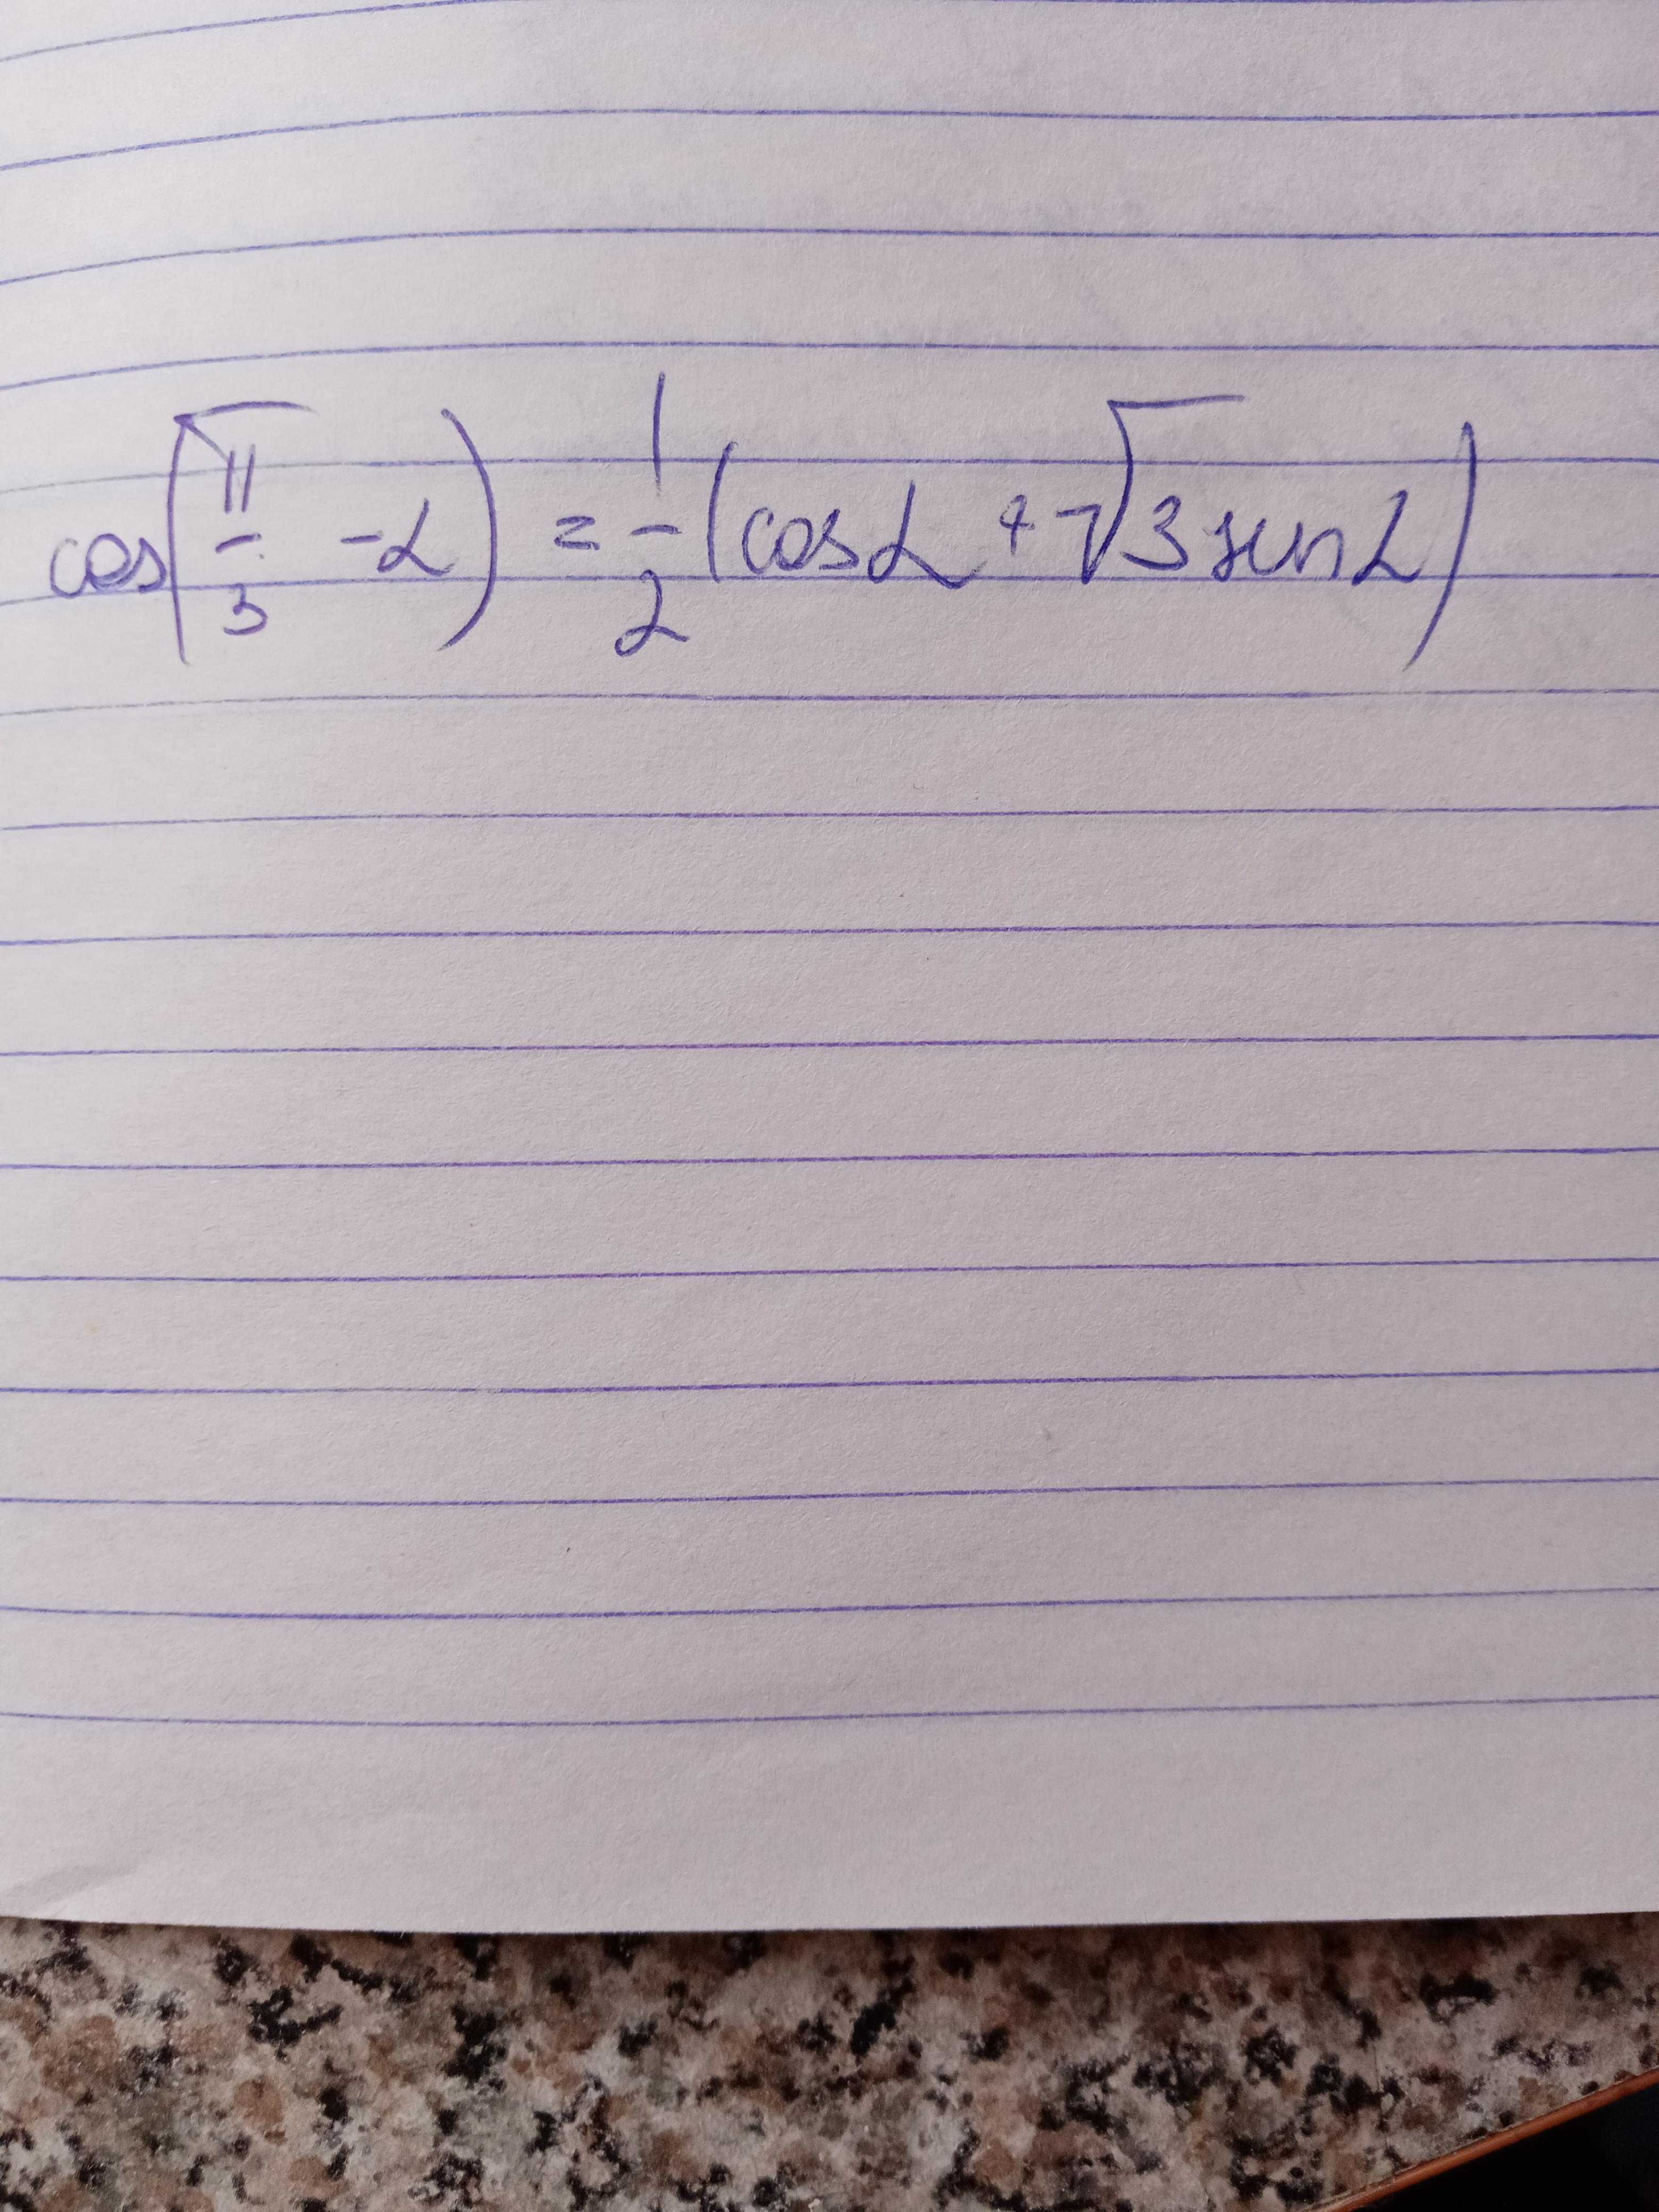 cos(π/3 - α) = 1/2 (cos α + √3 sen α)